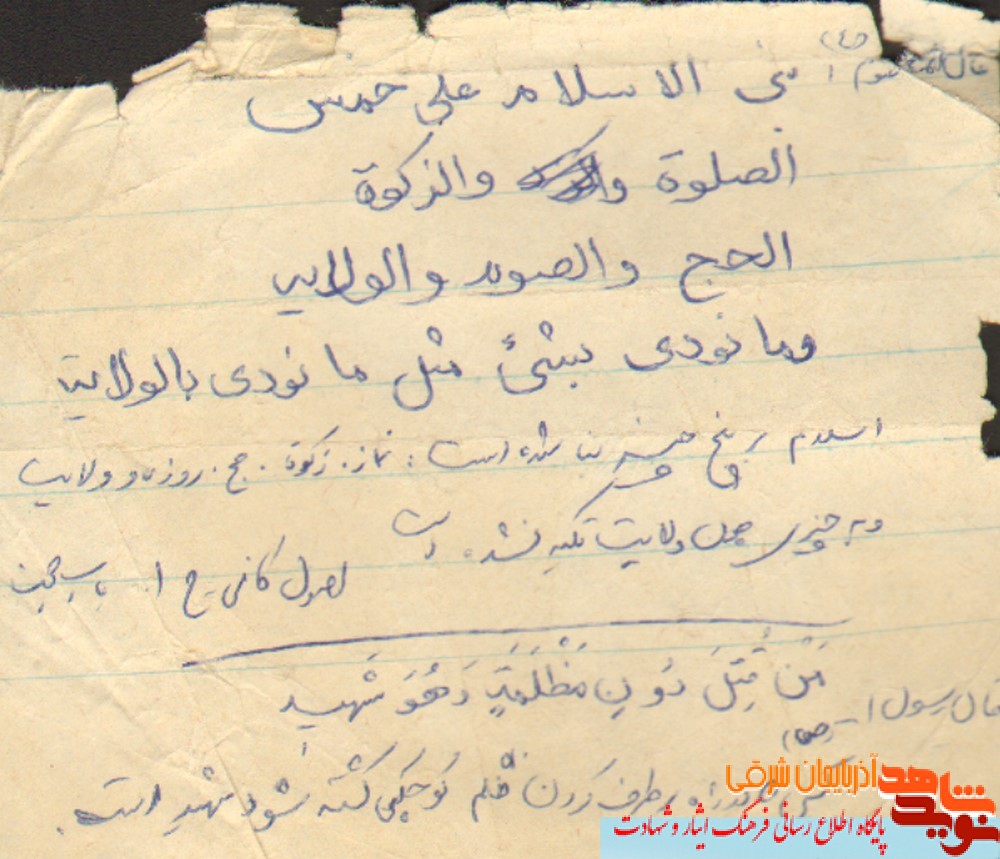 بنی الاسلام علی خمس
الصلوة والزکوة
الحج والصوم والولایه
وما نودی بشئ مثل ما نودی بالولایة
اسلام بر پنج چیز بنا شده است: نماز. زکوة. حج. روزه و ولایت
و به چیزی چون ولایت تکیه نشده است
اصول کافی ج ۱. باب حجت
قال رسول ا... (ص)
مَن قُتِلَ دُونِ مَظْلَمَةٍ وَهُوَ شَهید
برطرف کردن ظلم کوچکی کشته شود شهید است.
نوید شاهد
آذربایجان شرقی
پایگاه اطلاع رسانی فرهنگ ایثار و شهادت